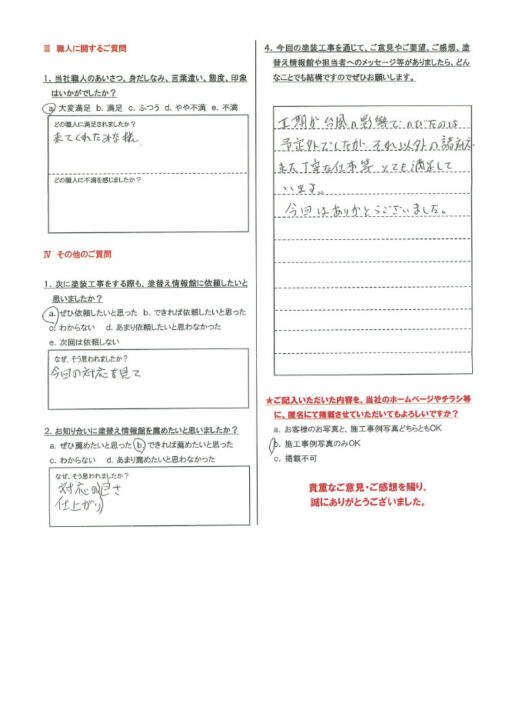 Ⅲ 職人に関するご質問
1．当社職人のあいさつ、身だしなみ、言葉遣い、態度、印象
はいかがでしたか？
a. 大変満足 b. 満足 c. ふつう d. やや不満 e. 不満
どの職人に満足されましたか？
来てくれた皆様
どの職人に不満を感じましたか？
Ⅳ その他のご質問
1．次に塗装工事をする際も、塗替え情報館に依頼したいと
思いましたか？
a. ぜひ依頼したいと思った b. できれば依頼したいと思った
c. わからない d. あまり依頼したいと思わなかった
e. 次回は依頼しない
なぜ、そう思われましたか？
今回の対応を見て
2．お知り合いに塗替え情報館を薦めたいと思いましたか？
a. ぜひ薦めたいと思った b. できれば薦めたいと思った
c. わからない d. あまり薦めたいと思わなかった
なぜ、そう思われましたか？
対応の良さ
仕上がり
4．今回の塗装工事を通じて、ご意見やご要望、ご感想、塗
替え情報館や担当者へのメッセージ等がありましたら、どん
なことでも結構ですのでぜひお願いします。
工期が台風の影響でのびたのは
予定外でしたが、それ以外の諸対応
また丁寧な仕事等 とても満足して
います。
今回はありがとうございました。
★ご記入いただいた内容を、当社のホームページやチラシ等
に、匿名にて掲載させていただいてもよろしいですか？
a. お客様のお写真と、施工事例写真どちらともOK
b. 施工事例写真のみOK
c. 掲載不可
貴重なご意見・ご感想を賜り、
誠にありがとうございました。